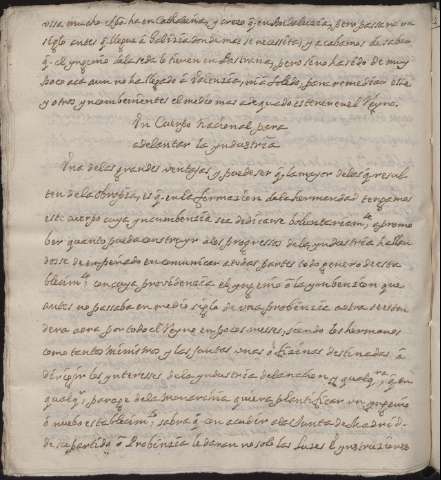 usa mucho tpo. ha en Cathaluña, y creo q. en Andalucia, pero pasara un
siglo antes q. llegue à Galizia donde mas se necessita, y acabamos de saber
q. el yngenio de la seda le tienen en Pastrana, pero sino ha sido de muy
poco acà aun no ha llegado à Valencia, ni à Toledo, para remediar este
y otros ynconbenientes el medio mas adequado es tener en el Reyno.
Un Cuerpo Nacional para
adelantar la yndustria
Una de las grandes ventajas y puede ser q. la mayor de las q. resul
ten de la obra pia, es q. en la formacion de la hermandad tengamos
este cuerpo cuya yncumbencia sea dedicarse boluntariamte. a promo
ber quanto pueda constribuyr a los progressos de la yndustria hallan
dose desempeñado en comunicar a todas partes todo genero de esta
blecimto. con cuya providencia el yngenio ò la ynbencion que
antes no passaba en medio siglo de una probincia a otra se esten
dera aora por todo el Reyno en pocos meses, siendo los hermanos
como tantos ministros y las Juntas unas oficinas destinadas à
dirigir los yntereses de la yndustria de la nacion, y qualqra. q. en
qualqr. parage de la monarchia quiera plantificar un yngenio
ò nuebo establecimto. sabra q. en acudir a la Junta de Madrid ò
de su partido, ò Probinzia le daran no solo las luces è ynstrucciones